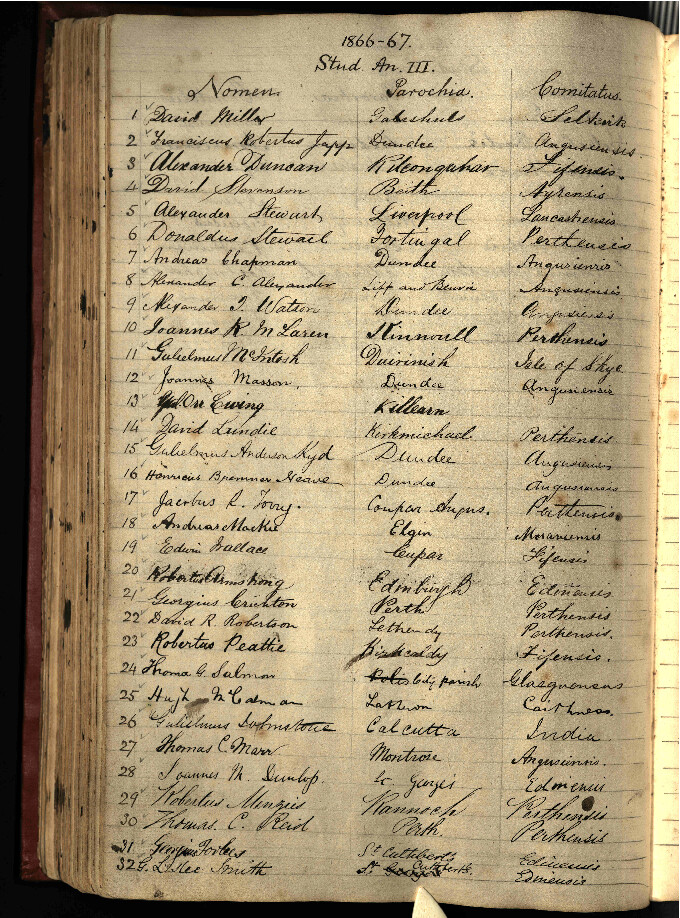 1866-67.
Stud. An. III.
Nomen. Parochia. Comitatus.
1 David Miller Galashiels Selkirk
2 Franciscus Robertus Japp Dundee Angusiensis.
3 Alexander Duncan Kilconquhar Fifensis.
4 David Stevenson Beith Ayrensis
5 Alexander Stewart Liverpool Lancastriensis
6 Donaldus Stewart Fortingal Perthensis
7 Andreas Chapman Dundee Angusiensis
8 Alexander C. Alexander Liff and Benvie Angusiensis
9 Alexander J. Watson Dundee Angusiensis
10 Joannes K. McLaren Kinnoull Perthensis
11 Gulielmus McIntosh Duirinish Isle of Skye
12 Joannes Masson. Dundee Angusiensis
13 Ewing Killearn
14 David Lundie Kirkmichael Perthensis
15 Gulielmus Anderson Kyd Dundee Angusiensis
16 Henricus Bremner Neave Dundee Angusiensis
17 Jacobus R. Torry. Coupar Angus. Perthensis
18 Andreas Mackie Elgin Moraviensis
19 Edwin Wallace Cupar Fifensis
20 Robertus Armstrong Edinburgh Edinensis
21 Georgius Crichton Perth Perthensis
22 David R. Robertson Lethendy Perthensis.
23 Robertus Peattie Kirkcaldy Fifensis.
24 Thoma G. Salmon City parish Glasguensis
25 Hugh McCalman Latheron Caithness.
26 Gulielmus Johnstone Calcutta India
27 Thomas C. Marr Montrose Angusiensis.
28 Joannes M. Dunlop. St Georges Edinensis
29 Robertus Menzies Rannoch Perthensis
30 Thomas. C. Reid Perth. Perthensis
31 Georgius Forbes St Cuthberts Edinensis
32 G. Lee Smith St Cuthberts. Edinensis